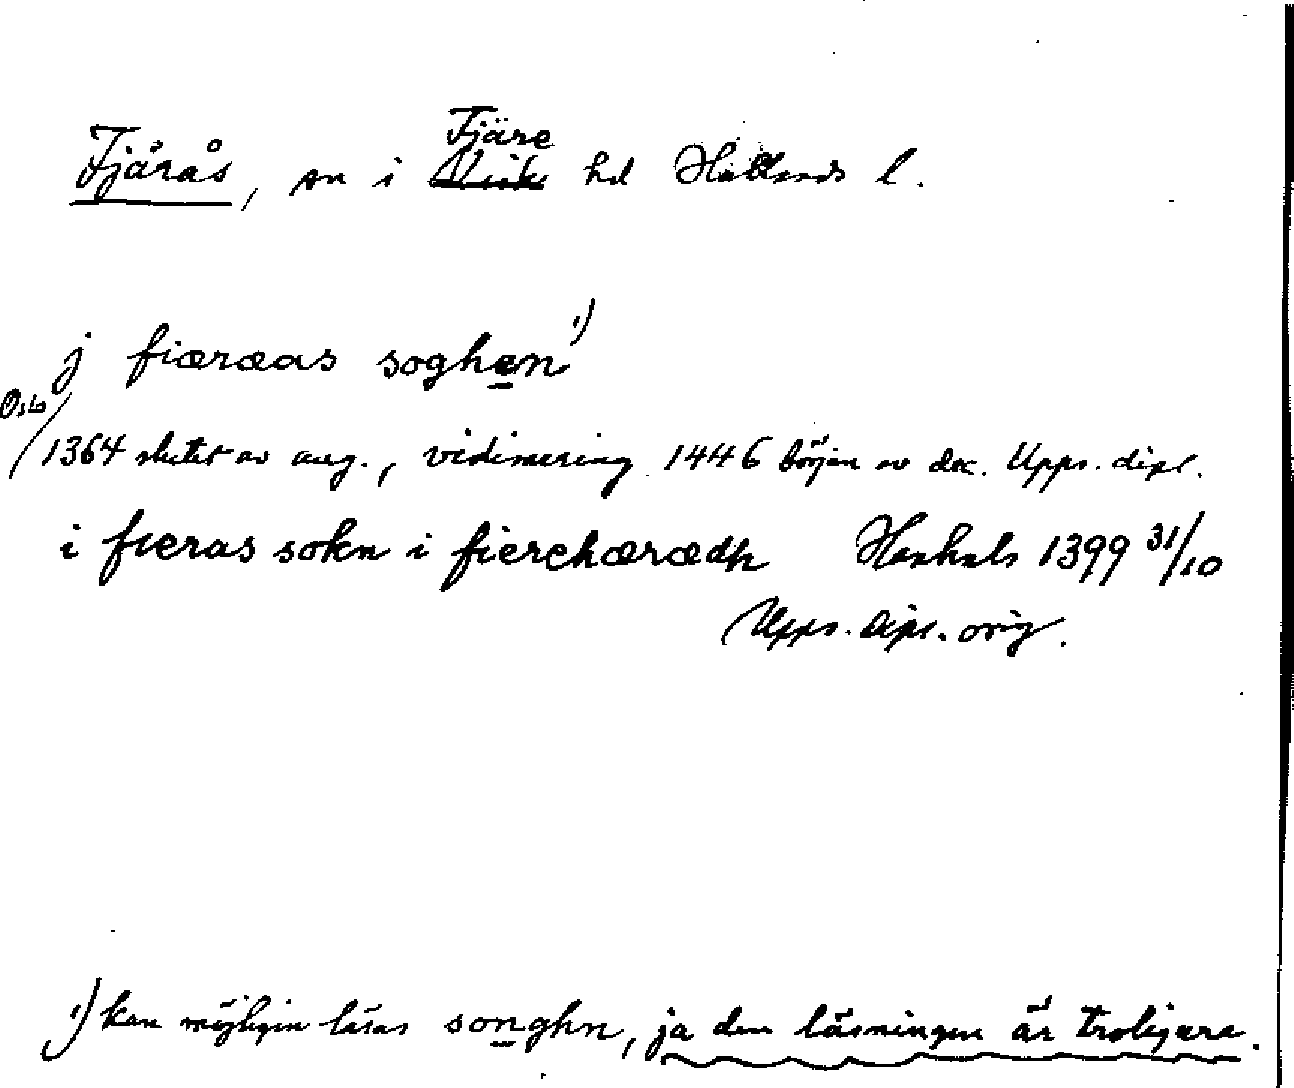 Fjärås, sn i Fjäre hd Hallands l.
j fiæræas soghen 1)
Oslo
1364 slutet av aug., vidimering 1446 början av dec. Upps. dipl.
i fieras sokn i fierehærædh Haxhals 1399 31/10
Upps. dipl. orig.
1) kan möjligen läsas songhn, ja den läsningen är troligare.